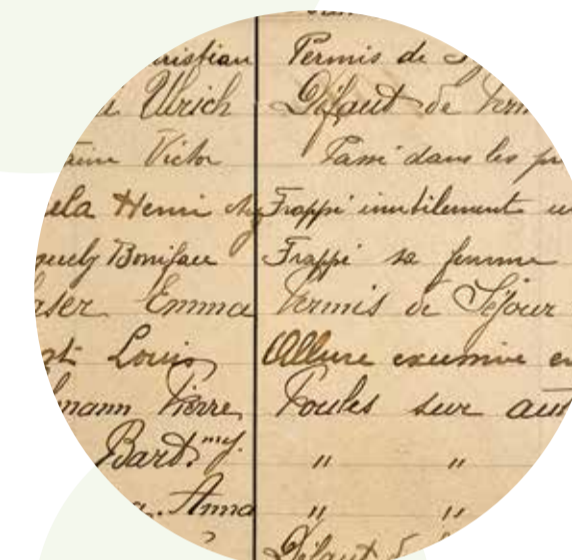 ristian Permis de
Ulrich Défaut de Perm
aine Victor Passé dans les pr
ela Henri Frappé inutilement u
uely Boniface Frappé sa femme
aser Emma Permis de Séjour
st Louis Allure excessive en
mann Pierre Poules sur aut
Bard. " "
Anna " "
Défaut de